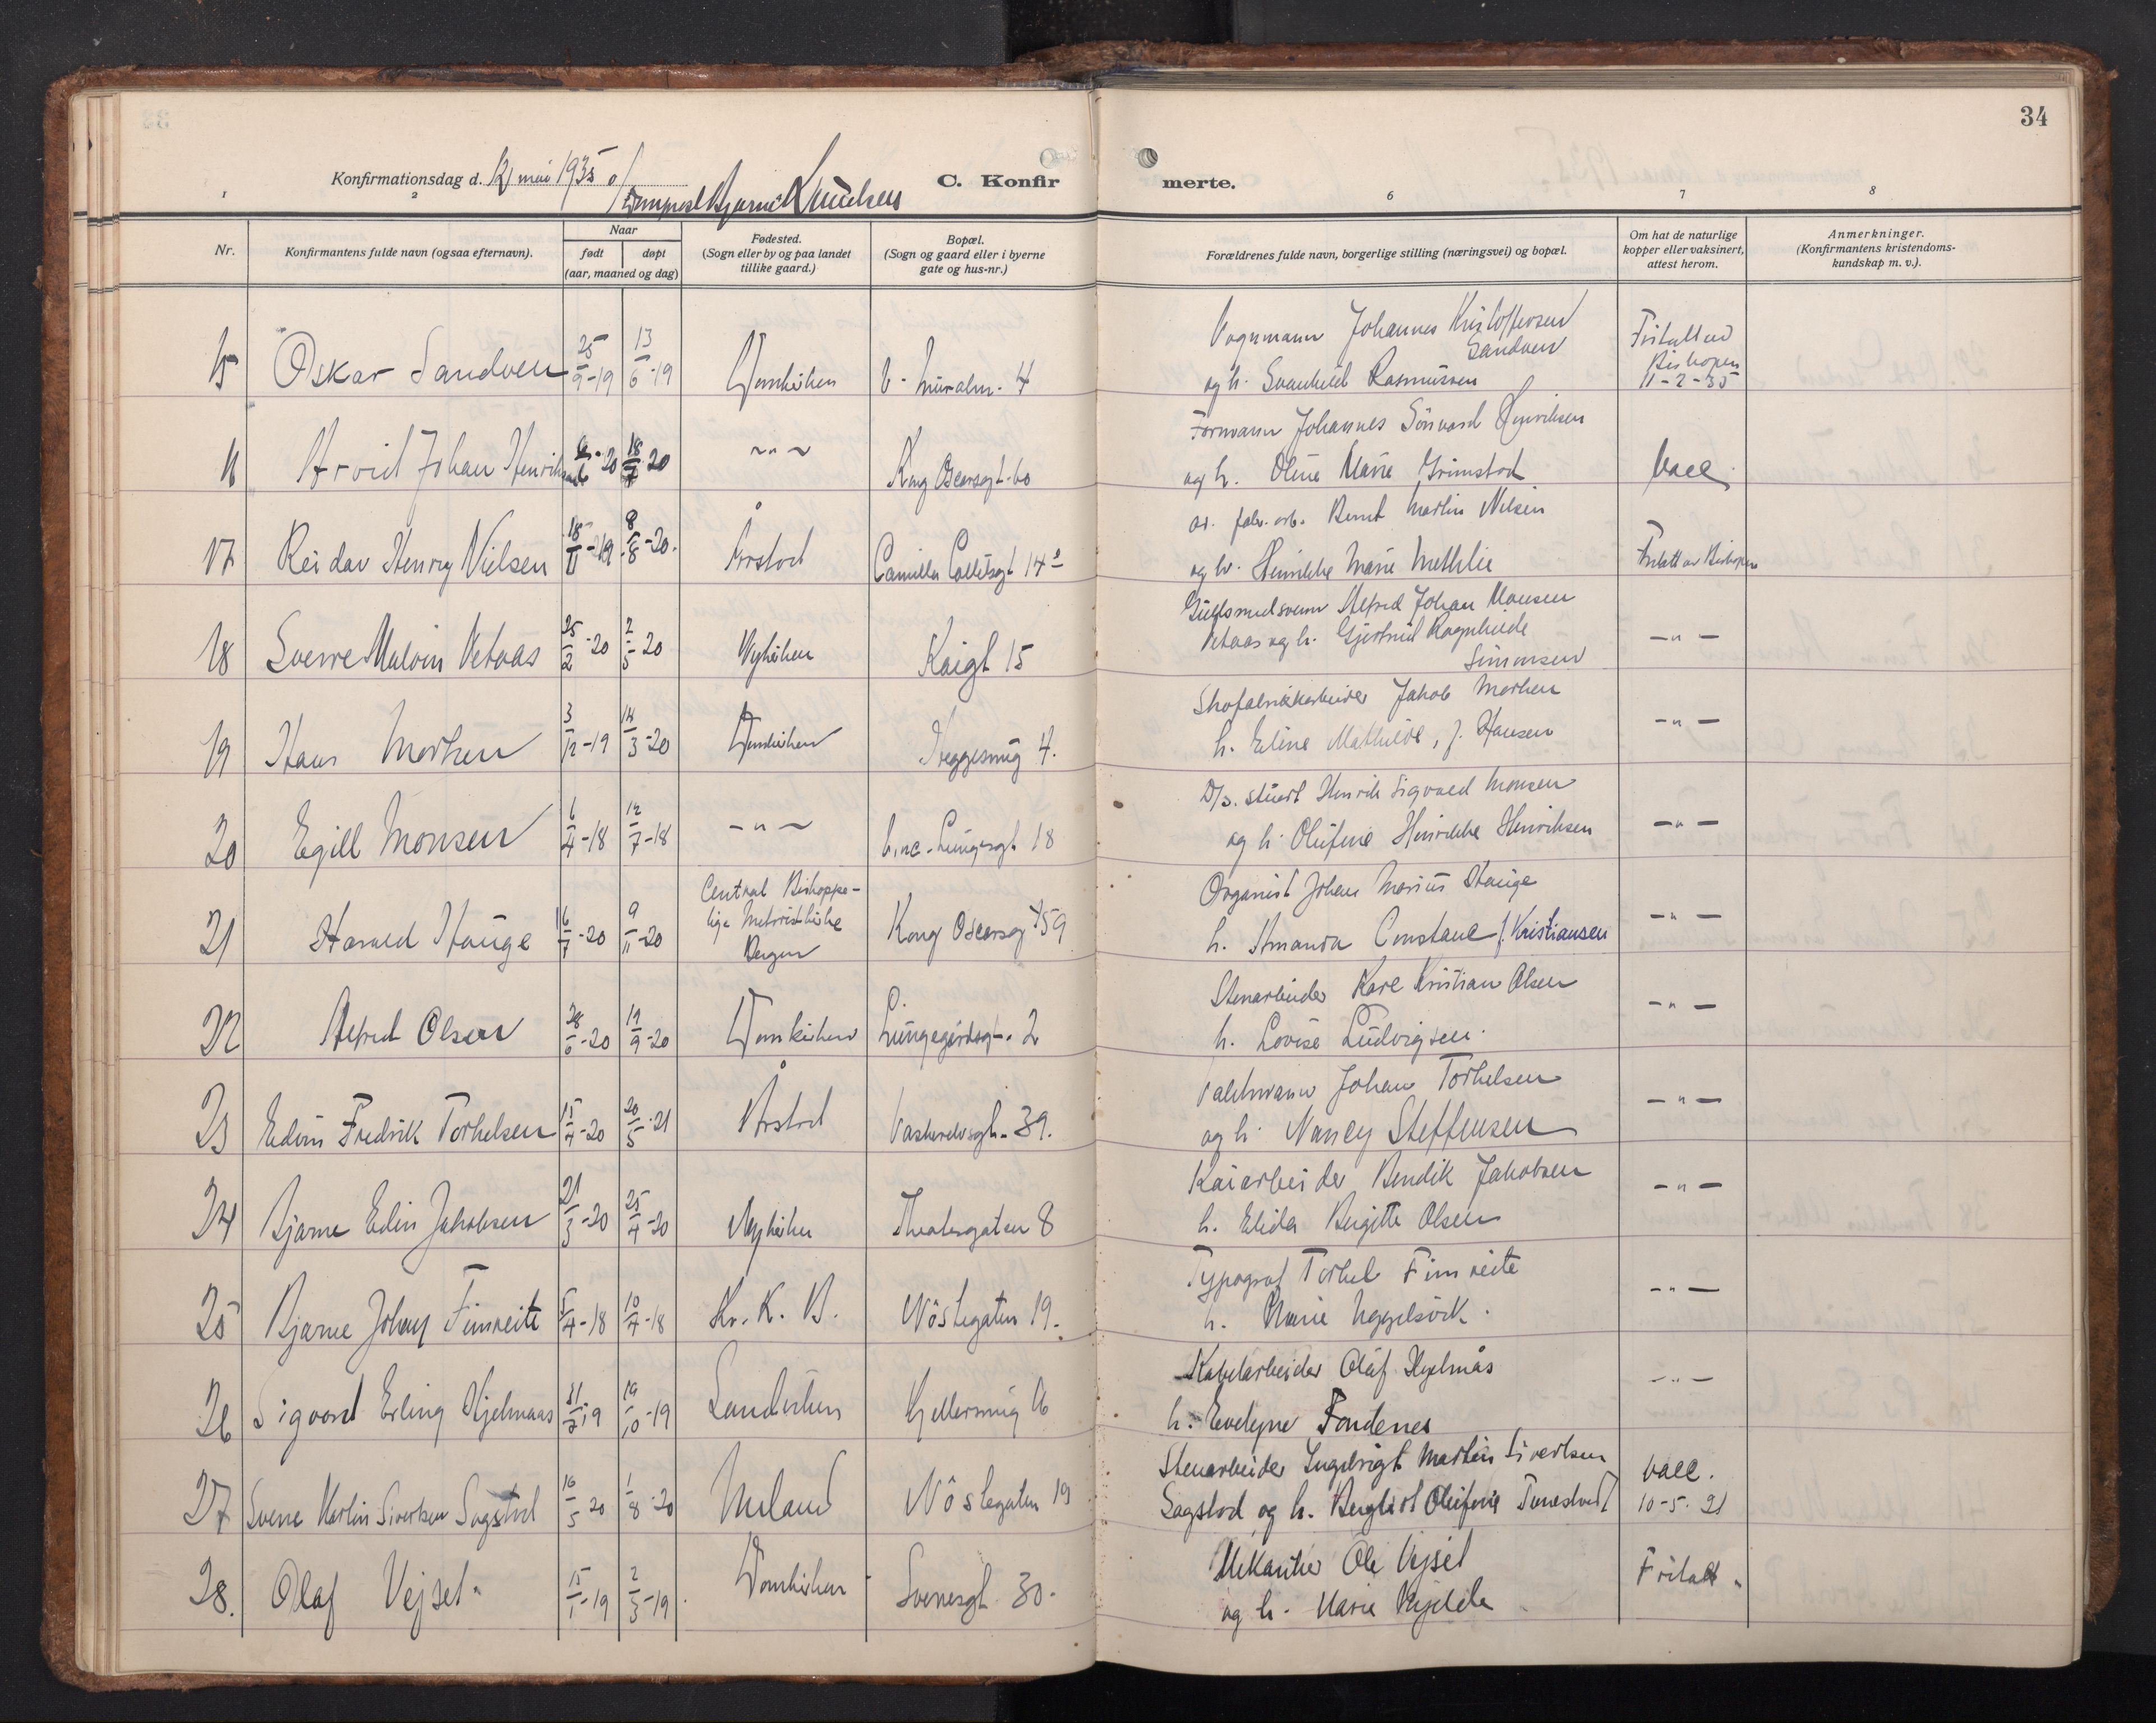 34
Konfirmationsdag d. 12 mai 1935
C. Konfirmerte.
Bjarne Knudsen
1 2 6 7 8
Nr.
Konfirmantens fulde navn (ogsaa efternavn).
Naar
født døpt
(aar, maaned og dag)
Fødested.
(Sogn eller by og paa landet
tillike gaard.)
Bopæl.
(Sogn og gaard eller i byerne
gate og hus-nr.)
Forældrenes fulde navn, borgerlige stilling (næringsvei) og bopæl.
Om hat de naturlige
kopper eller vaksinert,
attest herom.
Anmerkninger.
(Konfirmantens kristendoms-
kundskap m. v.).
Vognmann Johannes Kristoffersen
Sandven
15 Oskar Sandven 25/9-19 13/6-19 Domkirken 4
og h. Svanhild Rasmussen
Fritatt av
Biskopen
11-2-35
Formann Johannes Henriksen
16 Arvid Johan Henriksen 20 18/7 20 -"- Kong Oscarsgt. 60
og h. Oline Marie Grimstad
Vacc.
Bernt Martin Nilsen
17 Reidar Henry Nielsen 18/11-19 8/8-20. Årstad Camilla Colletsgt 14
og h. Henrikke Marie Methlie
Fritatt av Biskopen
Gullsmedsvenn Alfred Johan Monsen
Vetaas og h. Gjertrud Ragnhilde
Simonsen
18 Sverre Malvin Vetaas 25/2-20 2/5 20 Nykirken Kaigt 15
-"-
Skofabrikkarbeider Jakob Morken
19 Hans Morken 3/12-19 14/3-20 Domkirken Dreggesmug 4.
h. Eline Mathilde, f. Hansen
-"-
D/s. stuert Henrik Sigvald Monsen
20 Egill Monsen 6/4-18 12/7-18 -"- Lungesgt 18
og h. Olufine Henrikke Henriksen
-"-
Organist Johan Marius Hauge
21 Harald Hauge 16/7-20 9/11-20 Central Biskoppe-
lige Metodistkirke
Bergen
Kong Oscarsg 59
h. Amanda Constane f. Kristiansen
-"-
Stenarbeider Kare Kristian Olsen
22 Alfred Olsen 28/6-20 19/9-20 Domkirken Lungegårdsgt. 2
h. Lovise Ludvigsen.
-"-
Johan Torkelsen
23 Edvin Fredrik Torkelsen 15/4-20 20/5-21 Årstad 39.
og h. Nancy Steffensen
-"-
Kaiarbeider Bendik Jakobsen
24 Bjarne Edin Jakobsen 21/3-20 25/4-20 Nykirken Theatergaten 8
h. Elida Birgitte Olsen
-"-
Typograf Torkel Fimreite
25 Bjarne Johan Fimreite 5/4-18 10/7-18 Kr. K. B. Nöstegaten 19.
h. Marie
-"-
Kabelarbeider Olaf Hjelmås
26 Sigvard Erling Hjelmaas 31/7-19 19/10-19 Sandviken
h. Evelyne Fondenes
-"-
Stenarbeider Ingebrigt Martin Sivertsen
27 Sverre Martin Sivertsen Sagstad 16/5-20 1/8-20 Meland Nöstegaten 19
Sagstad og h. Bergliot Olufine Tunestvedt
vacc.
10-5. 21
Mekaniker Ole Vejset
28. Olaf Vejset 15/1-19 2/3-19. Domkirken - Sverresgt 30.
og h. Marie
Fritatt